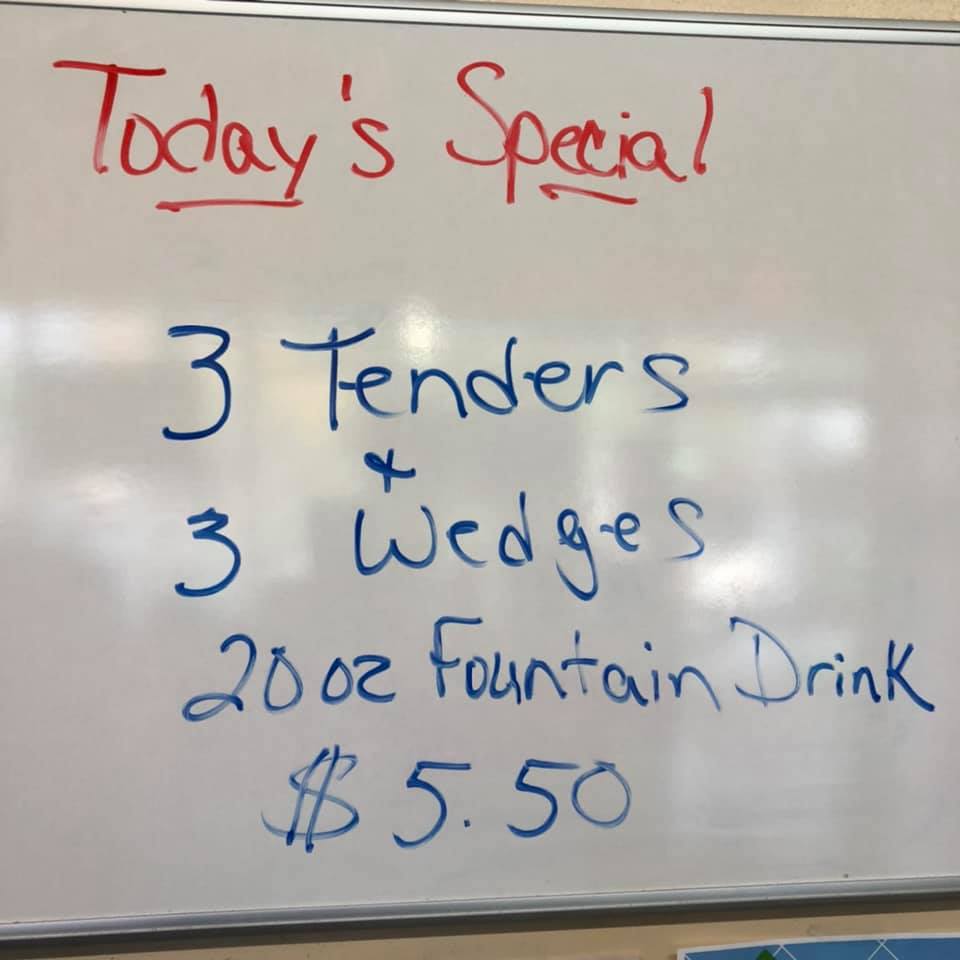 Today's Special
3 Tenders
&
3 Wedges
20 oz Fountain Drink
$5.50